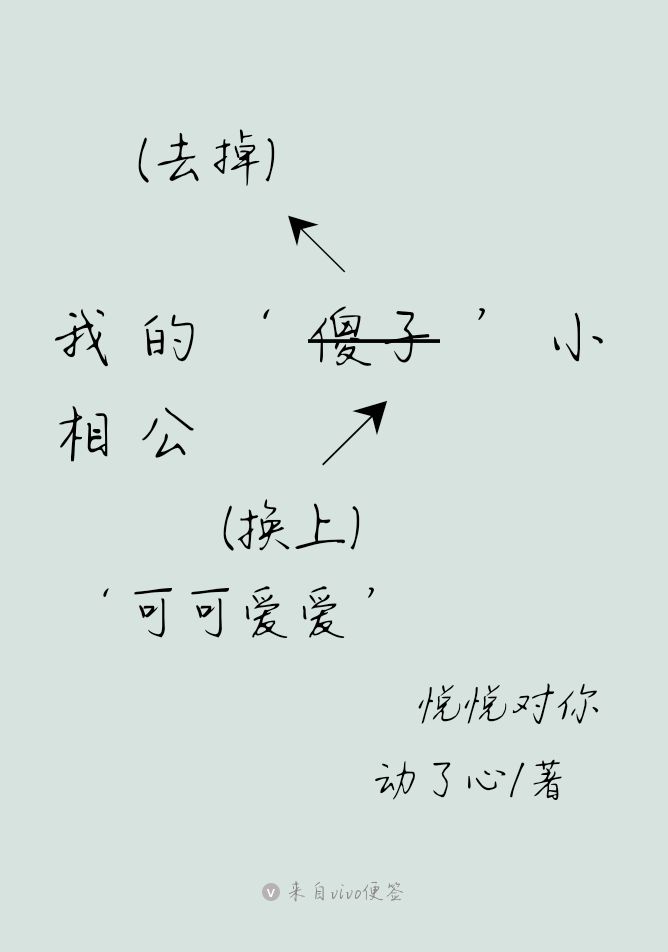 (去掉)
我的‘傻子’小
相公
(换上)
‘可可爱爱’
悦悦对你
动了心/著
v 来自vivo便签